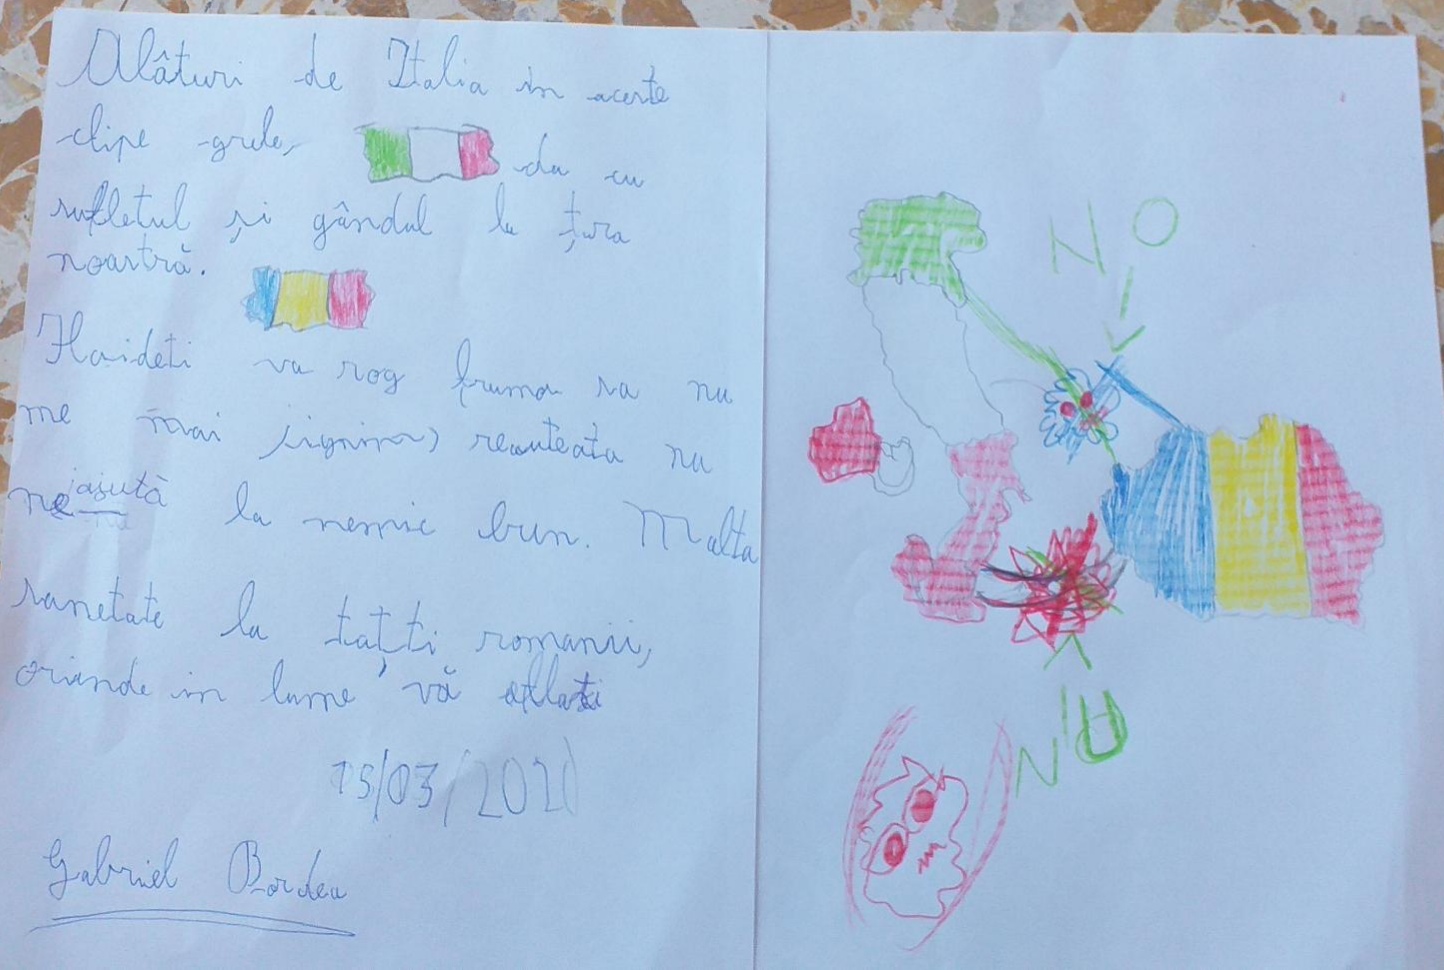 Alâturi de Italia in aceste
clipe grele, da cu
sufletul și gândul la țara
noastră.
Haideti va rog fruma sa nu
me mai jignim, reauteata nu
ne ajută
la nemic bun. Multa
sanetate la toțti romanii,
oriunde in lume vă aflati
15/03/2020
Gabriel Bordea
NO
NU